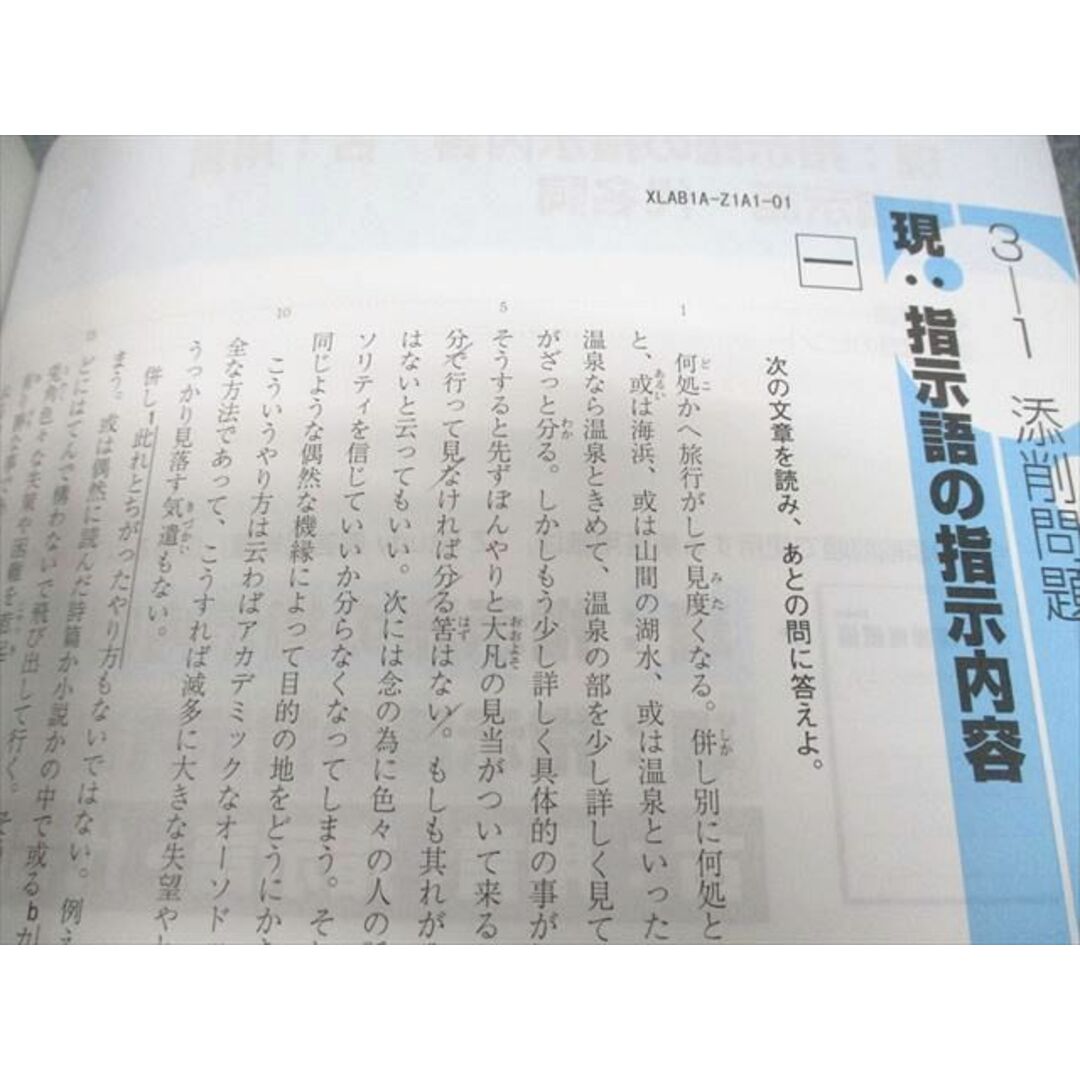 3―1 添削問題
現：指示語の指示内容
XLAB1A-Z1A1-01
一
次の文章を読み、あとの問に答えよ。
何処かへ旅行がして見度くなる。併し別に何処と
と、或は海浜、或は山間の湖水、或は温泉といった
温泉なら温泉ときめて、温泉の部を少し詳しく見て
がざっと分る。しかしもう少し詳しく具体的の事が
そうすると先ずぼんやりと大凡の見当がついて来る
分で行って見なければ分る筈はない。もしも其れが
はないと云ってもいい。次には念の為に色々の人の
ソリティを信じていいか分らなくなってしまう。そ
同じような偶然な機縁によって目的の地をどうにか
こういうやり方は云わばアカデミックなオーソド
全な方法であって、こうすれば滅多に大きな失望や
うっかり見落す気遣もない。
併し1此れとちがったやり方もないではない。例え
まう。或は偶然に読んだ詩篇か小説かの中で或るb
どにはてんで構わないで飛び出して行く。そう
色々な失策や困難を
1
5
10
どこ
みた
しか
あるい
わか
おおよそ
はず
きづかい